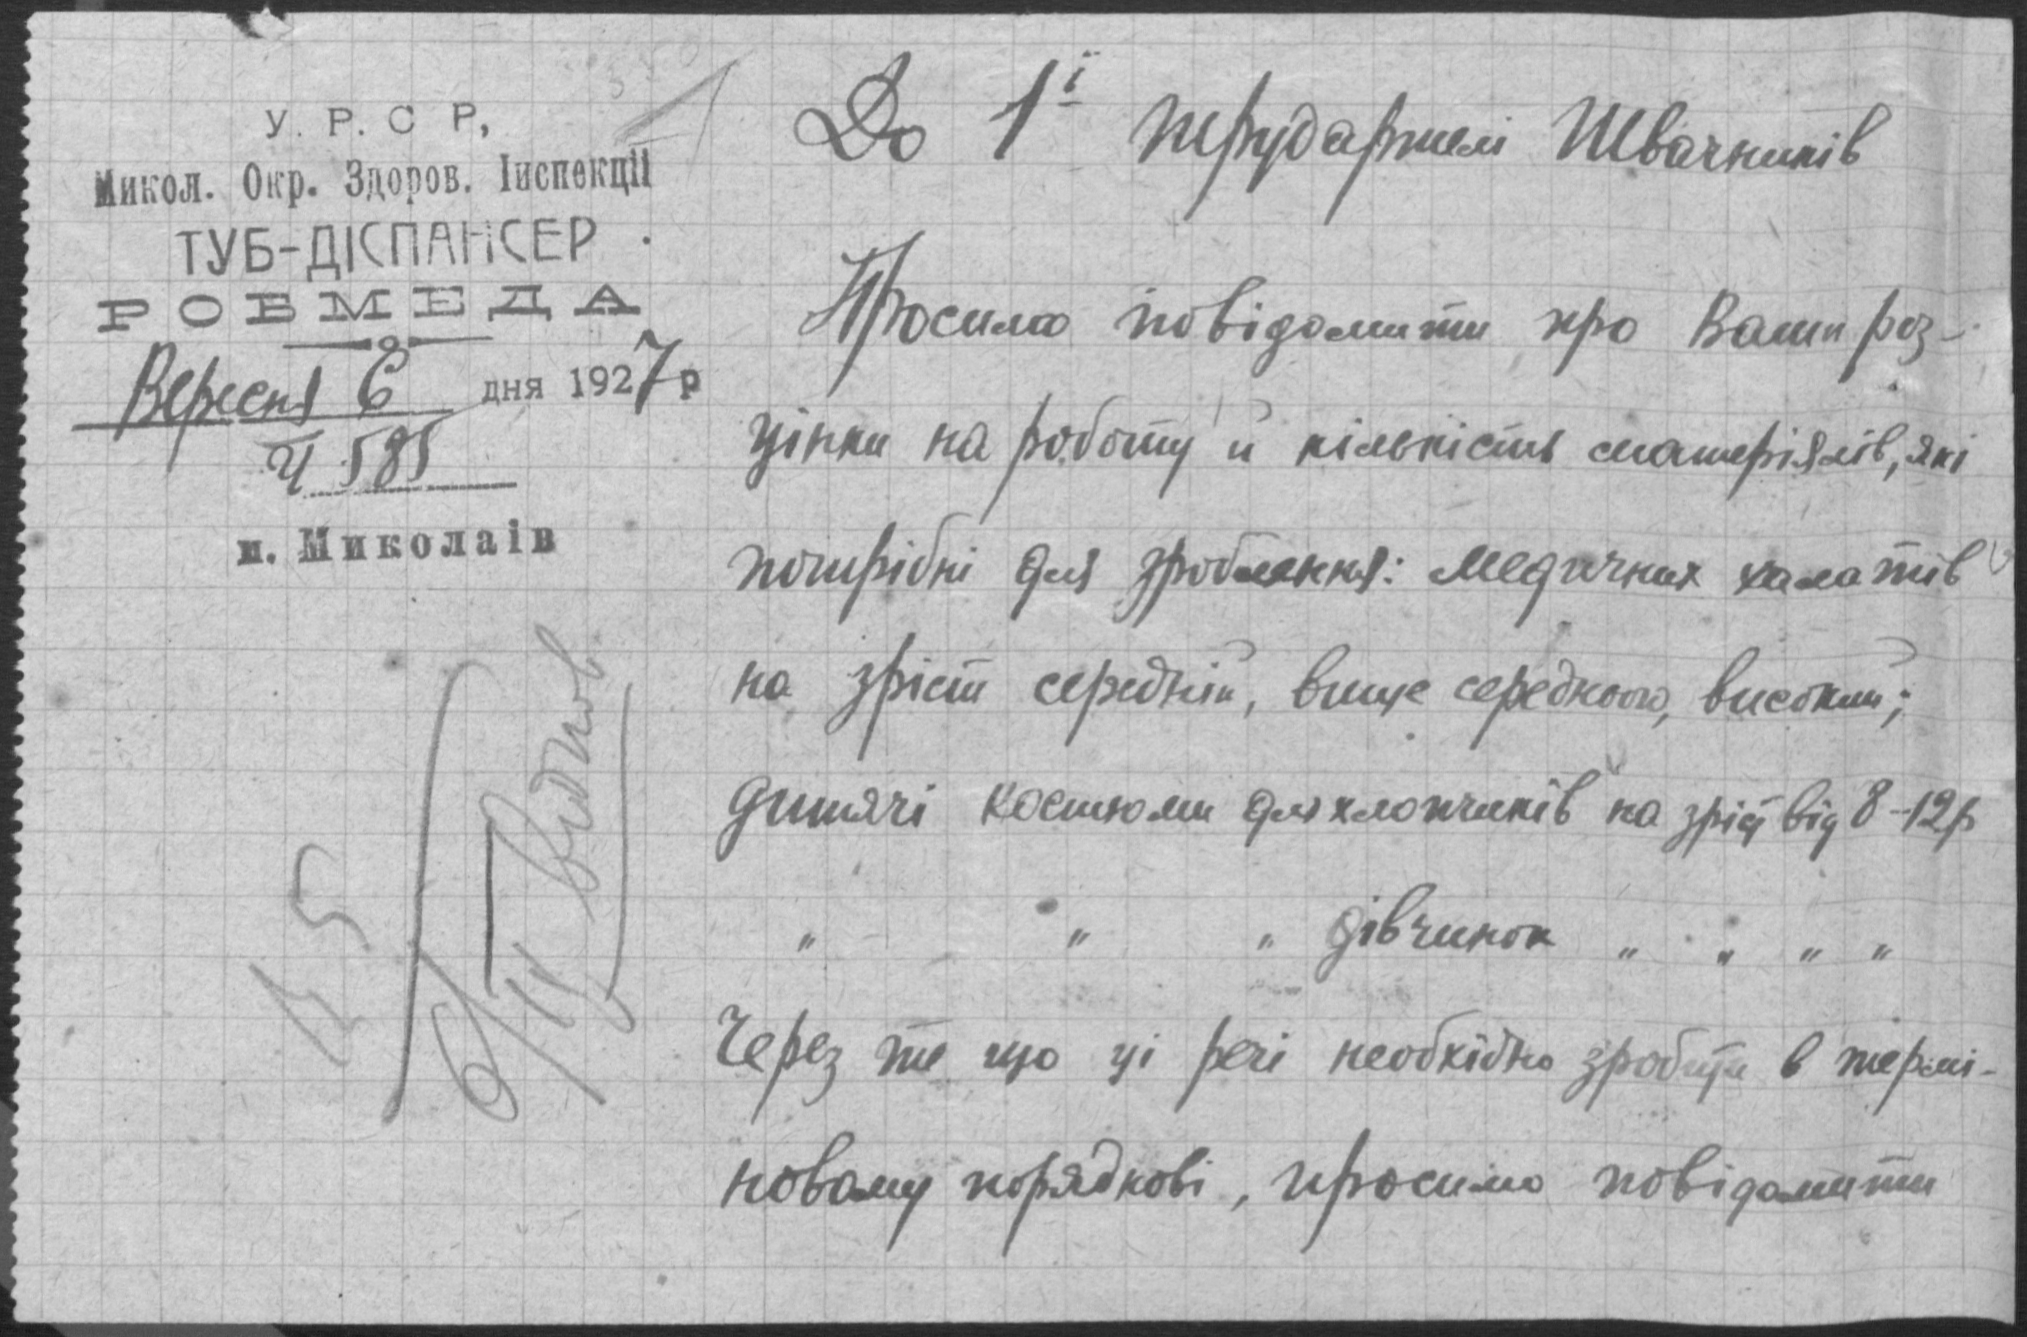 У. Р. С Р,
Микол. Окр. Здоров. Інспекції
ТУБ-ДІСПАНСЕР
РОБМЕДА
Вересня 6 дня 1927 р
Ч 585
м. Миколаів
До 1ї трудартелі Швачників
Просимо повідомити про Ваши роз-
цінки на роботу й кількість матеріялів, які
потрібні для зроблення: медичних халатів
на зріст середній, вище середнього, високий;
дитячі костюми для хлопчиків на зріст від 8-12 р
" " " дівчинок " " " "
Через те що ці речі необхідно зробити в термі-
новому порядкові, просимо повідомити